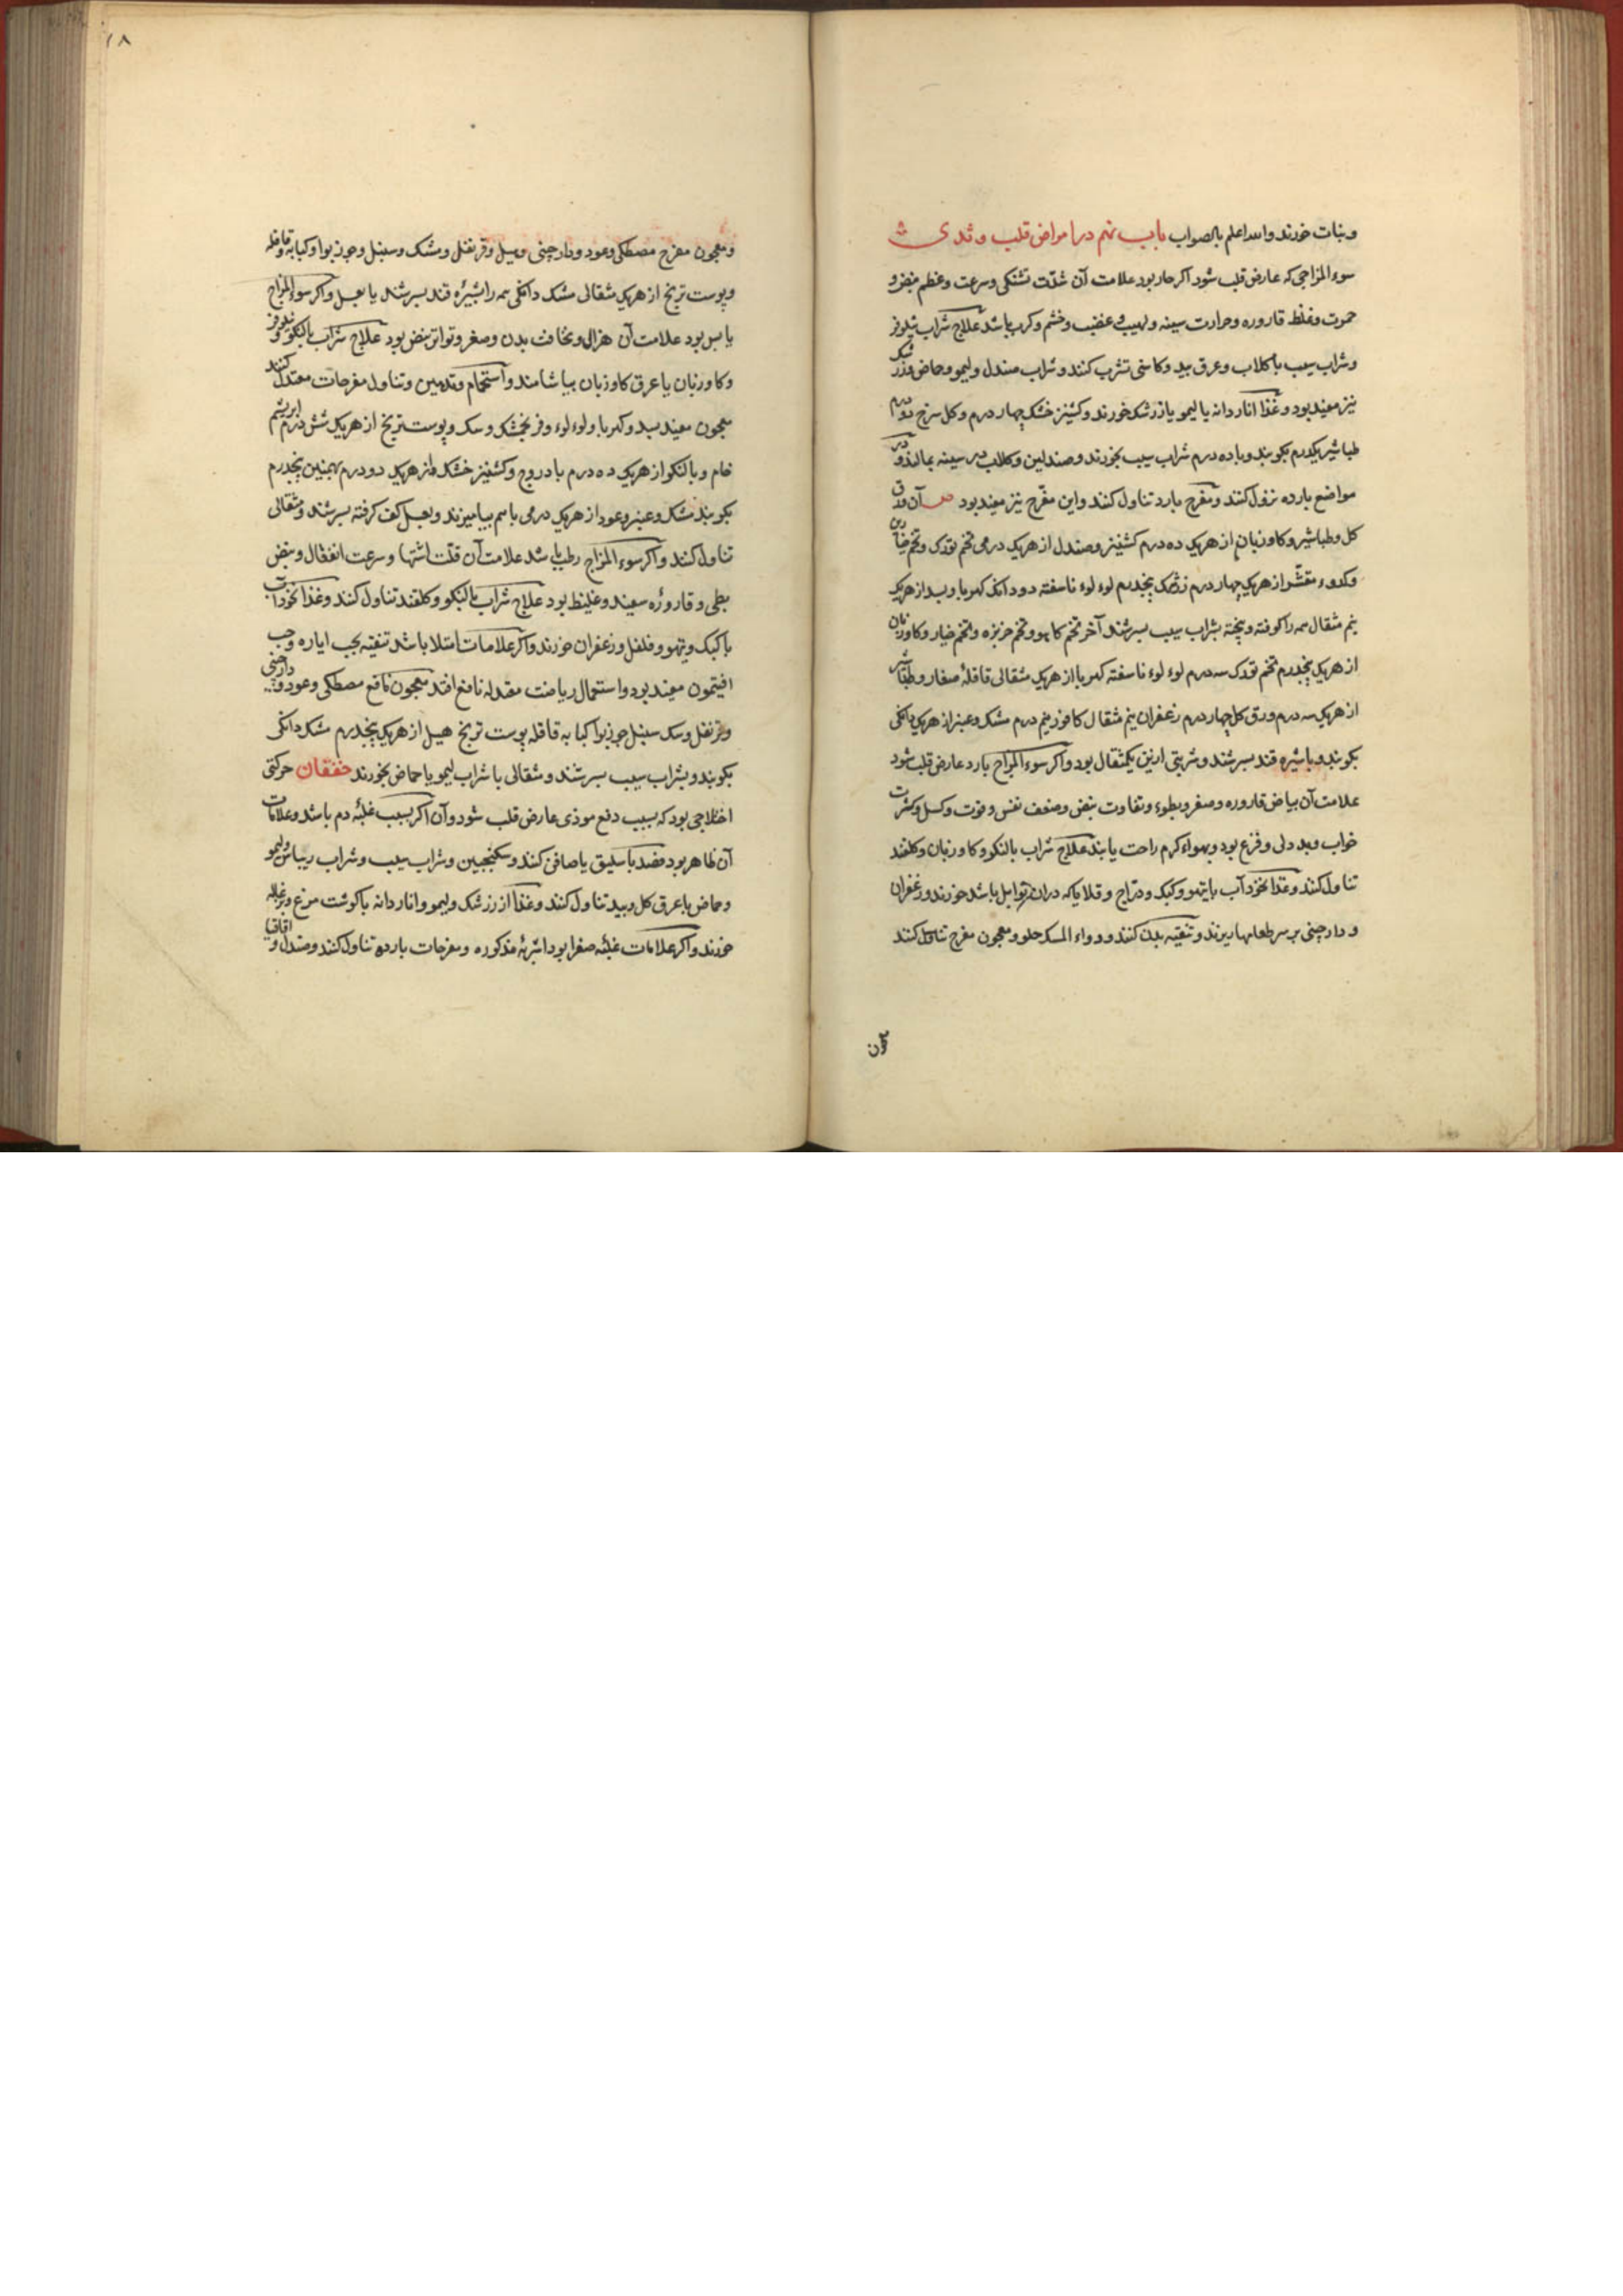 ونبات خورند والله اعلم بالصواب باب نهم در امراض قلب و ثدی
سوء المزاجی که عارض قلب شود اکر حار بود علامت آن شدّت تشنکی وسرعت وعظم نبض و
حموت وغلظ قاروره وحرارت سینه ولهیب و غضب وخشم وکرب باشد علاج شراب نیلوفر
وشراب سیب با کلاب وعرق بید وکاسنی تشرب کنند وشراب صندل ولیمو وحماض وزرشک
نیز مفید بود وغذا اناردانه یا لیمو یا زرشک خورند وکشنیز خشک چهار درم وکل سرخ دو درم
طباشیر یکدرم بکوبند وبا ده درم شراب سیب بخورند وصندلین وکلاب در سینه بمالند ودر
مواضع بارده نزول کنند ومفرح بارد تناول کنند واین مفرّح نیز مفید بود ص آن ورق
کل وطباشیر وکاوزبان از هریک ده درم کشنیز وصندل از هریک درمی تخم تورک وتخم خیارین
وکدوء مقشّر از هریک چهار درم زرشک پنجدرم لوء لوء ناسفته دو دانک کهربا وبسد از هریک
نیم مثقال همه را کوفته وپخته بشراب سیب بسرشند آخر تخم کاهو وتخم خربزه وتخم خیار وکاوزبان
از هریک پنجدرم تخم تورک سه درم لوء لوء ناسفته کهربا از هریک مثقالی قاقلهٔ صغار وطباشیر
از هریک سه درم ورق کل چهار درم زعفران نیم مثقال کافور نیم درم مشک وعنبر از هریک دانکی
بکوبند وباشیره قند بسرشند وشربتی ازین یکمثقال بود واکر سوء المزاج بارد عارض قلب شود
علامت آن بیاض قاروره وصغر وبطوء وتفاوت نبض وضعف نفس وقوت وکسل وکثرت
خواب وبد دلی وفزع بود وبهواء کرم راحت یابند علاج شراب بالنکو وکاوزبان وکلقند
تناول کنند وغذا نخودآب با تیهو وکبک ودرّاج وقلایا که در آن توابل باشد خورند وزعفران
و دارچینی بر سر طعامها ریزند وتنقیه بدن کنند ودواء المسک حلو ومعجون مفرح تناول کنند
۱۸
ومعجون مفرح مصطکی وعود ودارچینی وهیل وقرنفل ومشک وسنبل وجوزبوا وکبابه وقاقله
وپوست ترنج از هریک مثقالی مشک دانکی همه را بشیره قند بسرشند یا بعسل واکر سوء المزاج
یابس بود علامت آن هزال ونحافت بدن وصغر وتواتر نبض بود علاج شراب بالنکو ونیلوفر
وکاوزبان با عرق کاوزبان بیاشامند واستحمام وتدهین وتناول مفرحات معتدل کنند
معجون مفید بسد وکهربا ولوء لوء وفرنجمشک وسک وپوست ترنج از هریک شش درم ابریشم
خام وبالنکو از هریک ده درم بادروج وکشنیز خشک از هریک دو درم بهمنین پنجدرم
بکوبند مشک وعنبر وعود از هریک درمی با هم بیامیزند وبعسل کف کرفته بسرشند ومثقالی
تناول کنند واکر سوء المزاج رطب باشد علامت آن قلّت اشتها وسرعت انفعال ونبض
بطی وقاروره سفید وغلیظ بود علاج شراب بالنکو وکلقند تناول کنند وغذا نخودآب
با کبک وتیهو وفلفل وزعفران خورند واکر علامات امتلا باشد تنقیه بحب ایاره وحب
افتیمون مفید بود واستعمال ریاضت معتدله نافع افتد معجون نافع مصطکی وعود ودارچینی
وقرنفل وسک سنبل جوزبوا کبابه قاقله پوست ترنج هیل از هریک پنجدرم مشک دانکی
بکوبند وبشراب سیب بسرشند ومثقالی با شراب لیمو یا حماض بخورند خفقان حرکتی
اختلاجی بود که بسبب دفع موذی عارض قلب شود وآن اکر بسبب غلبهٔ دم باشد وعلامات
آن ظاهر بود فصد باسلیق یا صافن کنند وسکنجبین وشراب سیب وشراب ریباس ولیمو
وحماض با عرق کل وبید تناول کنند وغذا از زرشک ولیمو واناردانه با کوشت مرغ وبزغاله
خورند واکر علامات غلبهٔ صفرا بود اشربهٔ مذکوره ومفرحات بارده تناول کنند وصندل واقاقیا